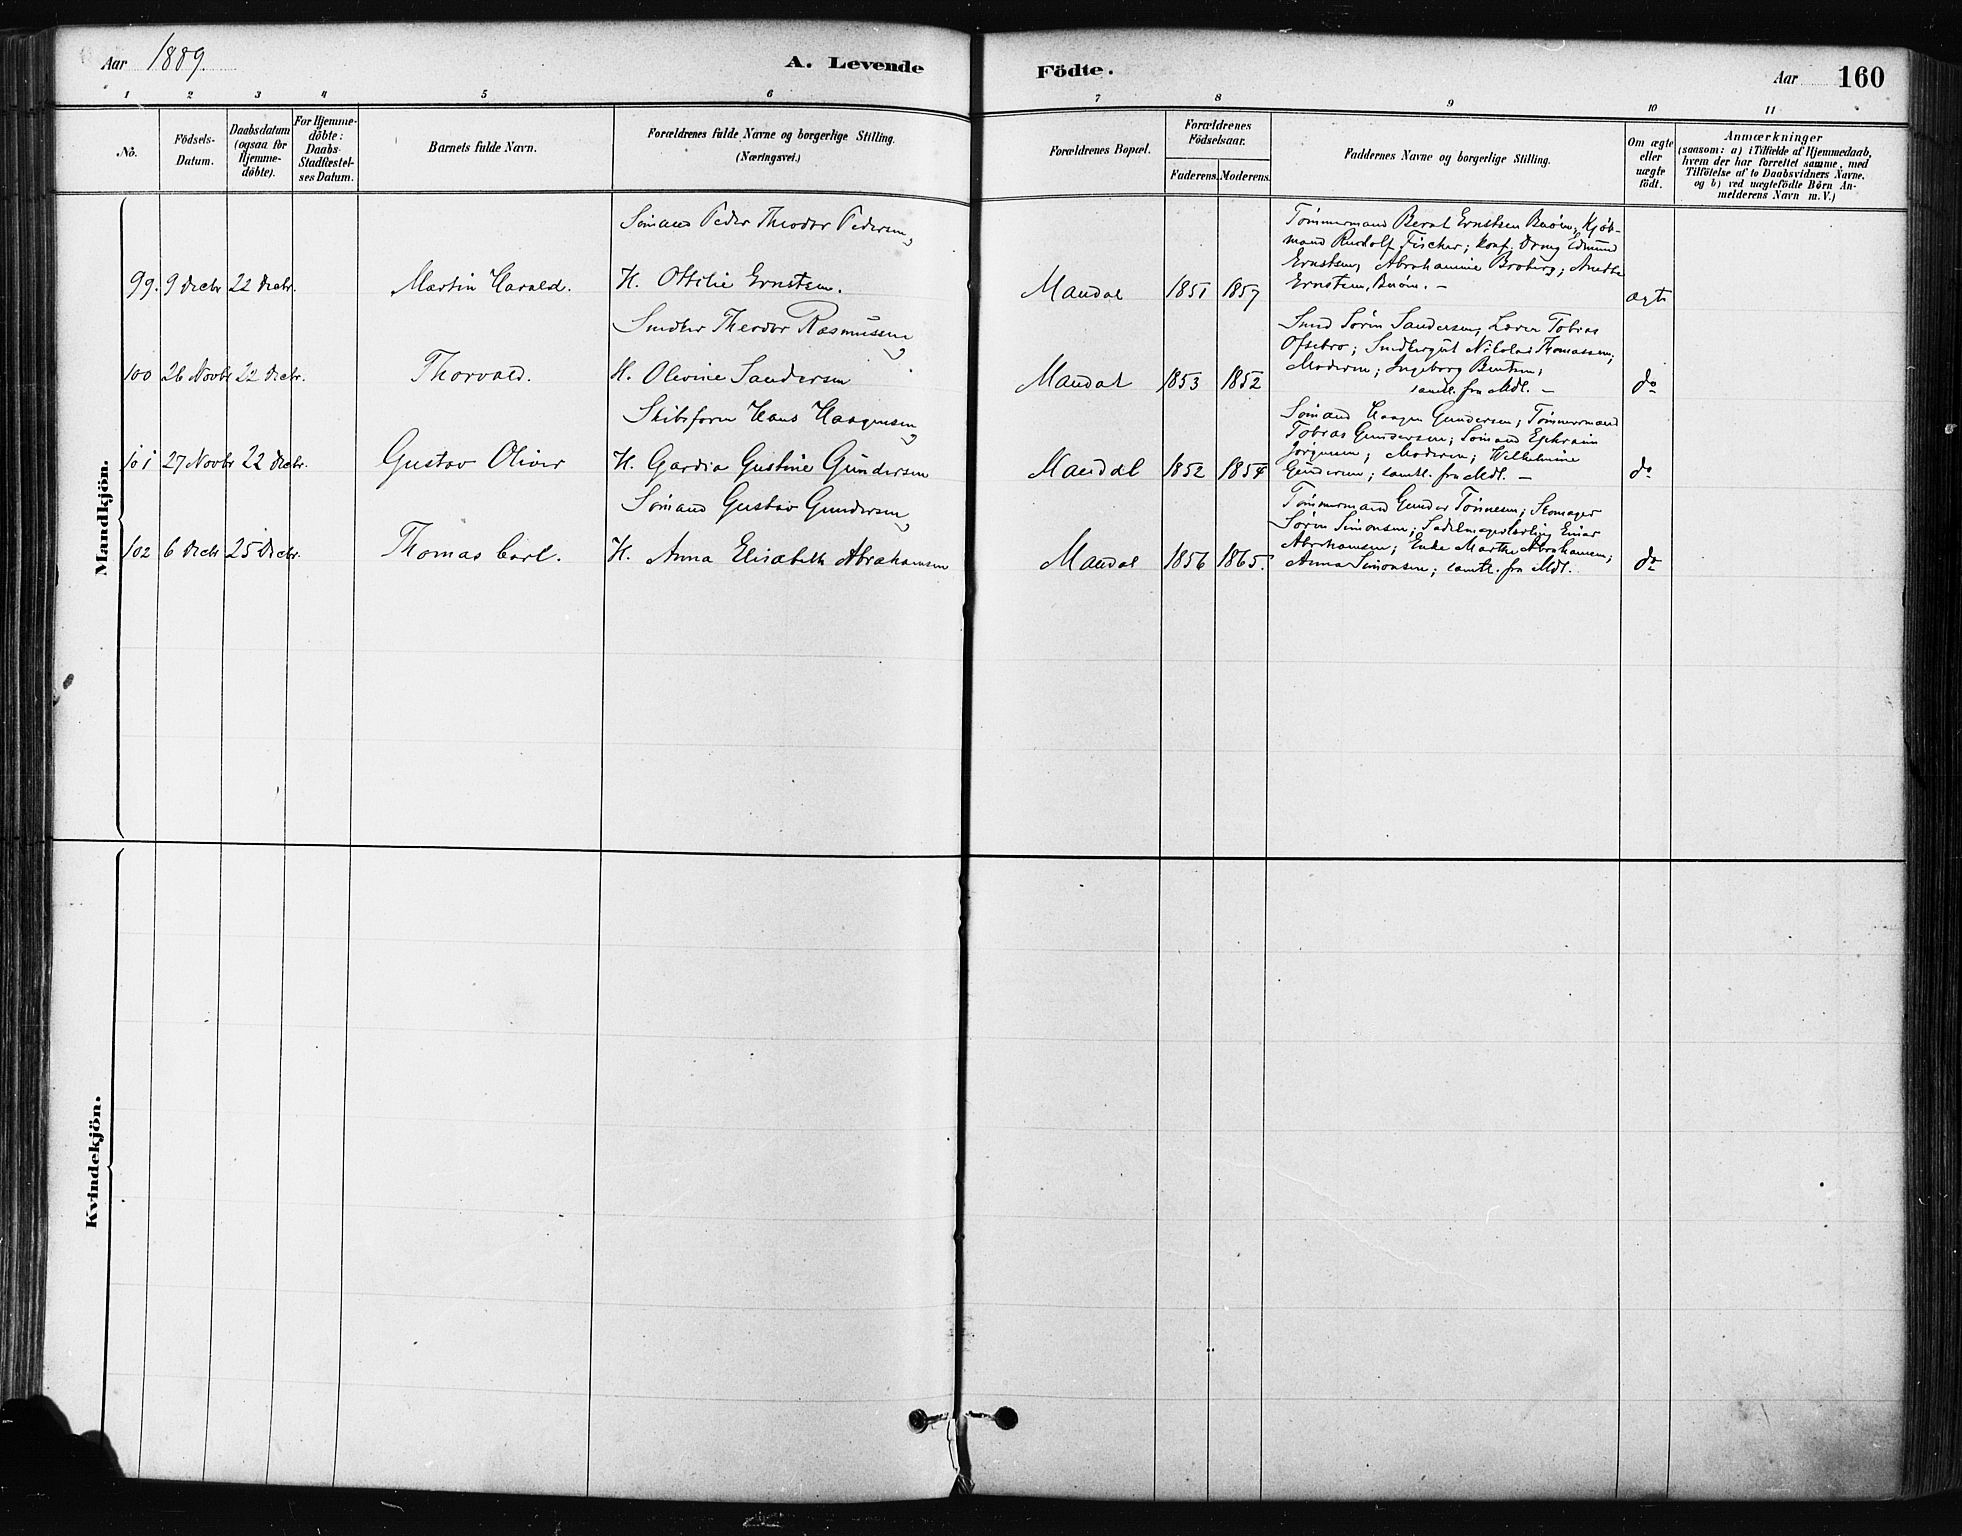 Aar 1889.
A. Levende
Födte.
Aar 160
1 2 3 4 5 6 7 8 9 10 11
No.
Födsels-
Datum.
Daabsdatum
(ogsaa for
Hjemme-
döbte).
For Hjemme-
döbte:
Daabs-
Stadfæstel-
ses Datum.
Barnets fulde Navn.
Forældrenes fulde Navne og borgerlige Stilling.
(Næringsvei.)
Forældrenes Bopæl.
Forældrenes
Födselsaar.
Faderens. Moderens.
Faddernes Navne og borgerlige Stilling.
Om ægte
eller
uægte
födt.
Anmærkninger
(saasom: a) i Tilfælde af Hjemmedaab,
hvem der har forrettet samme, med
Tilföielse af to Daabsvidners Navne,
og b) ved uægtefödte Börn An-
melderens Navn m. V.)
Mandkjön.
Sömand Peder Theodor Pedersen,
99. 9 Decbr 22 Decbr. Martin Harald. H. Ottilie Ernstsen. Mandal 1851 1857
Tømmermand Bernt Ernstsen Buøen; Kjöb-
mand Rudolf Fischer; konf. Dreng Edmund
Ernstsen, Abrahamine Broberg;
Ernstsen, Buøen. —
ægte
Smeder Theodor Rasmussen,
100 26 Novbr 22 Decbr. Thorvald. H. Olevine Sandersen Mandal 1853 1852
Smed Sørin Sandersen; Lærer Tobias
Ofsebro; Nikolai Thomassen;
Moderen; Ingeborg Bentsen;
samtl. fra Mdl. —
do
Skibsförer Hans Haagensen,
101 27 Novbr 22 Decbr. Gustav Oliver H. Gardia Gustine Gundersen Mandal 1852 1854
Sömand Haagen Gundersen; Tømmermand
Tobias Gundersen; Sömand Ephraim
Jörgensen; Moderen; Wilhelmine
Gundersen; samtl. fra Mdl. —
do
Sömand Gustav Gundersen,
102 6 Decbr 25 Decbr. Thomas Carl. H. Anna Elisabeth Abrahamsen Mandal 1856 1865.
Tømmermand Gunder Tönnesen; Skomager
Sörin Simonsen; Sadelmagerlærling Einar
Abrahamsen; Enke Marthe Abrahamsen;
Anna Simonsen; samtl. fra Mdl.
do
Kvindekjön.